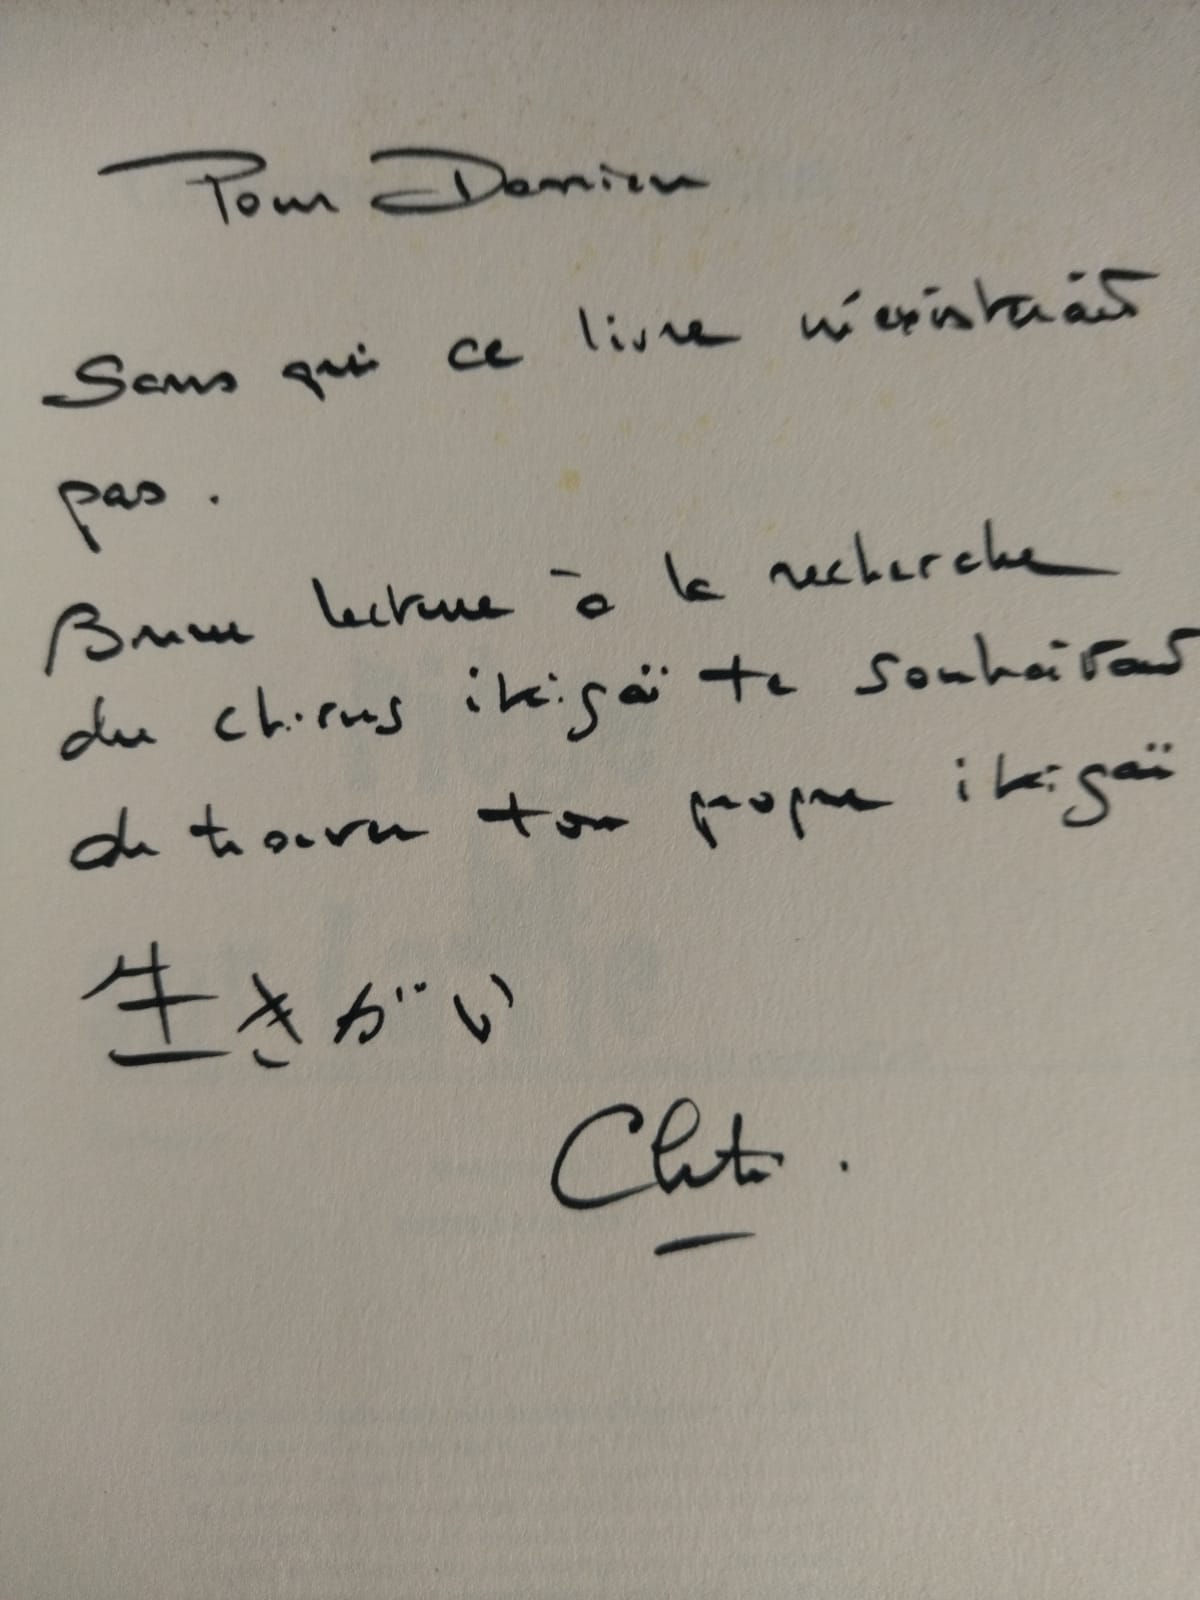 Pour Damien
Sans qui ce livre n'existerait
pas.
Bonne lecture à la recherche
du chinus ikigaï te souhaitant
de trouver ton propre ikigaï
生きがい